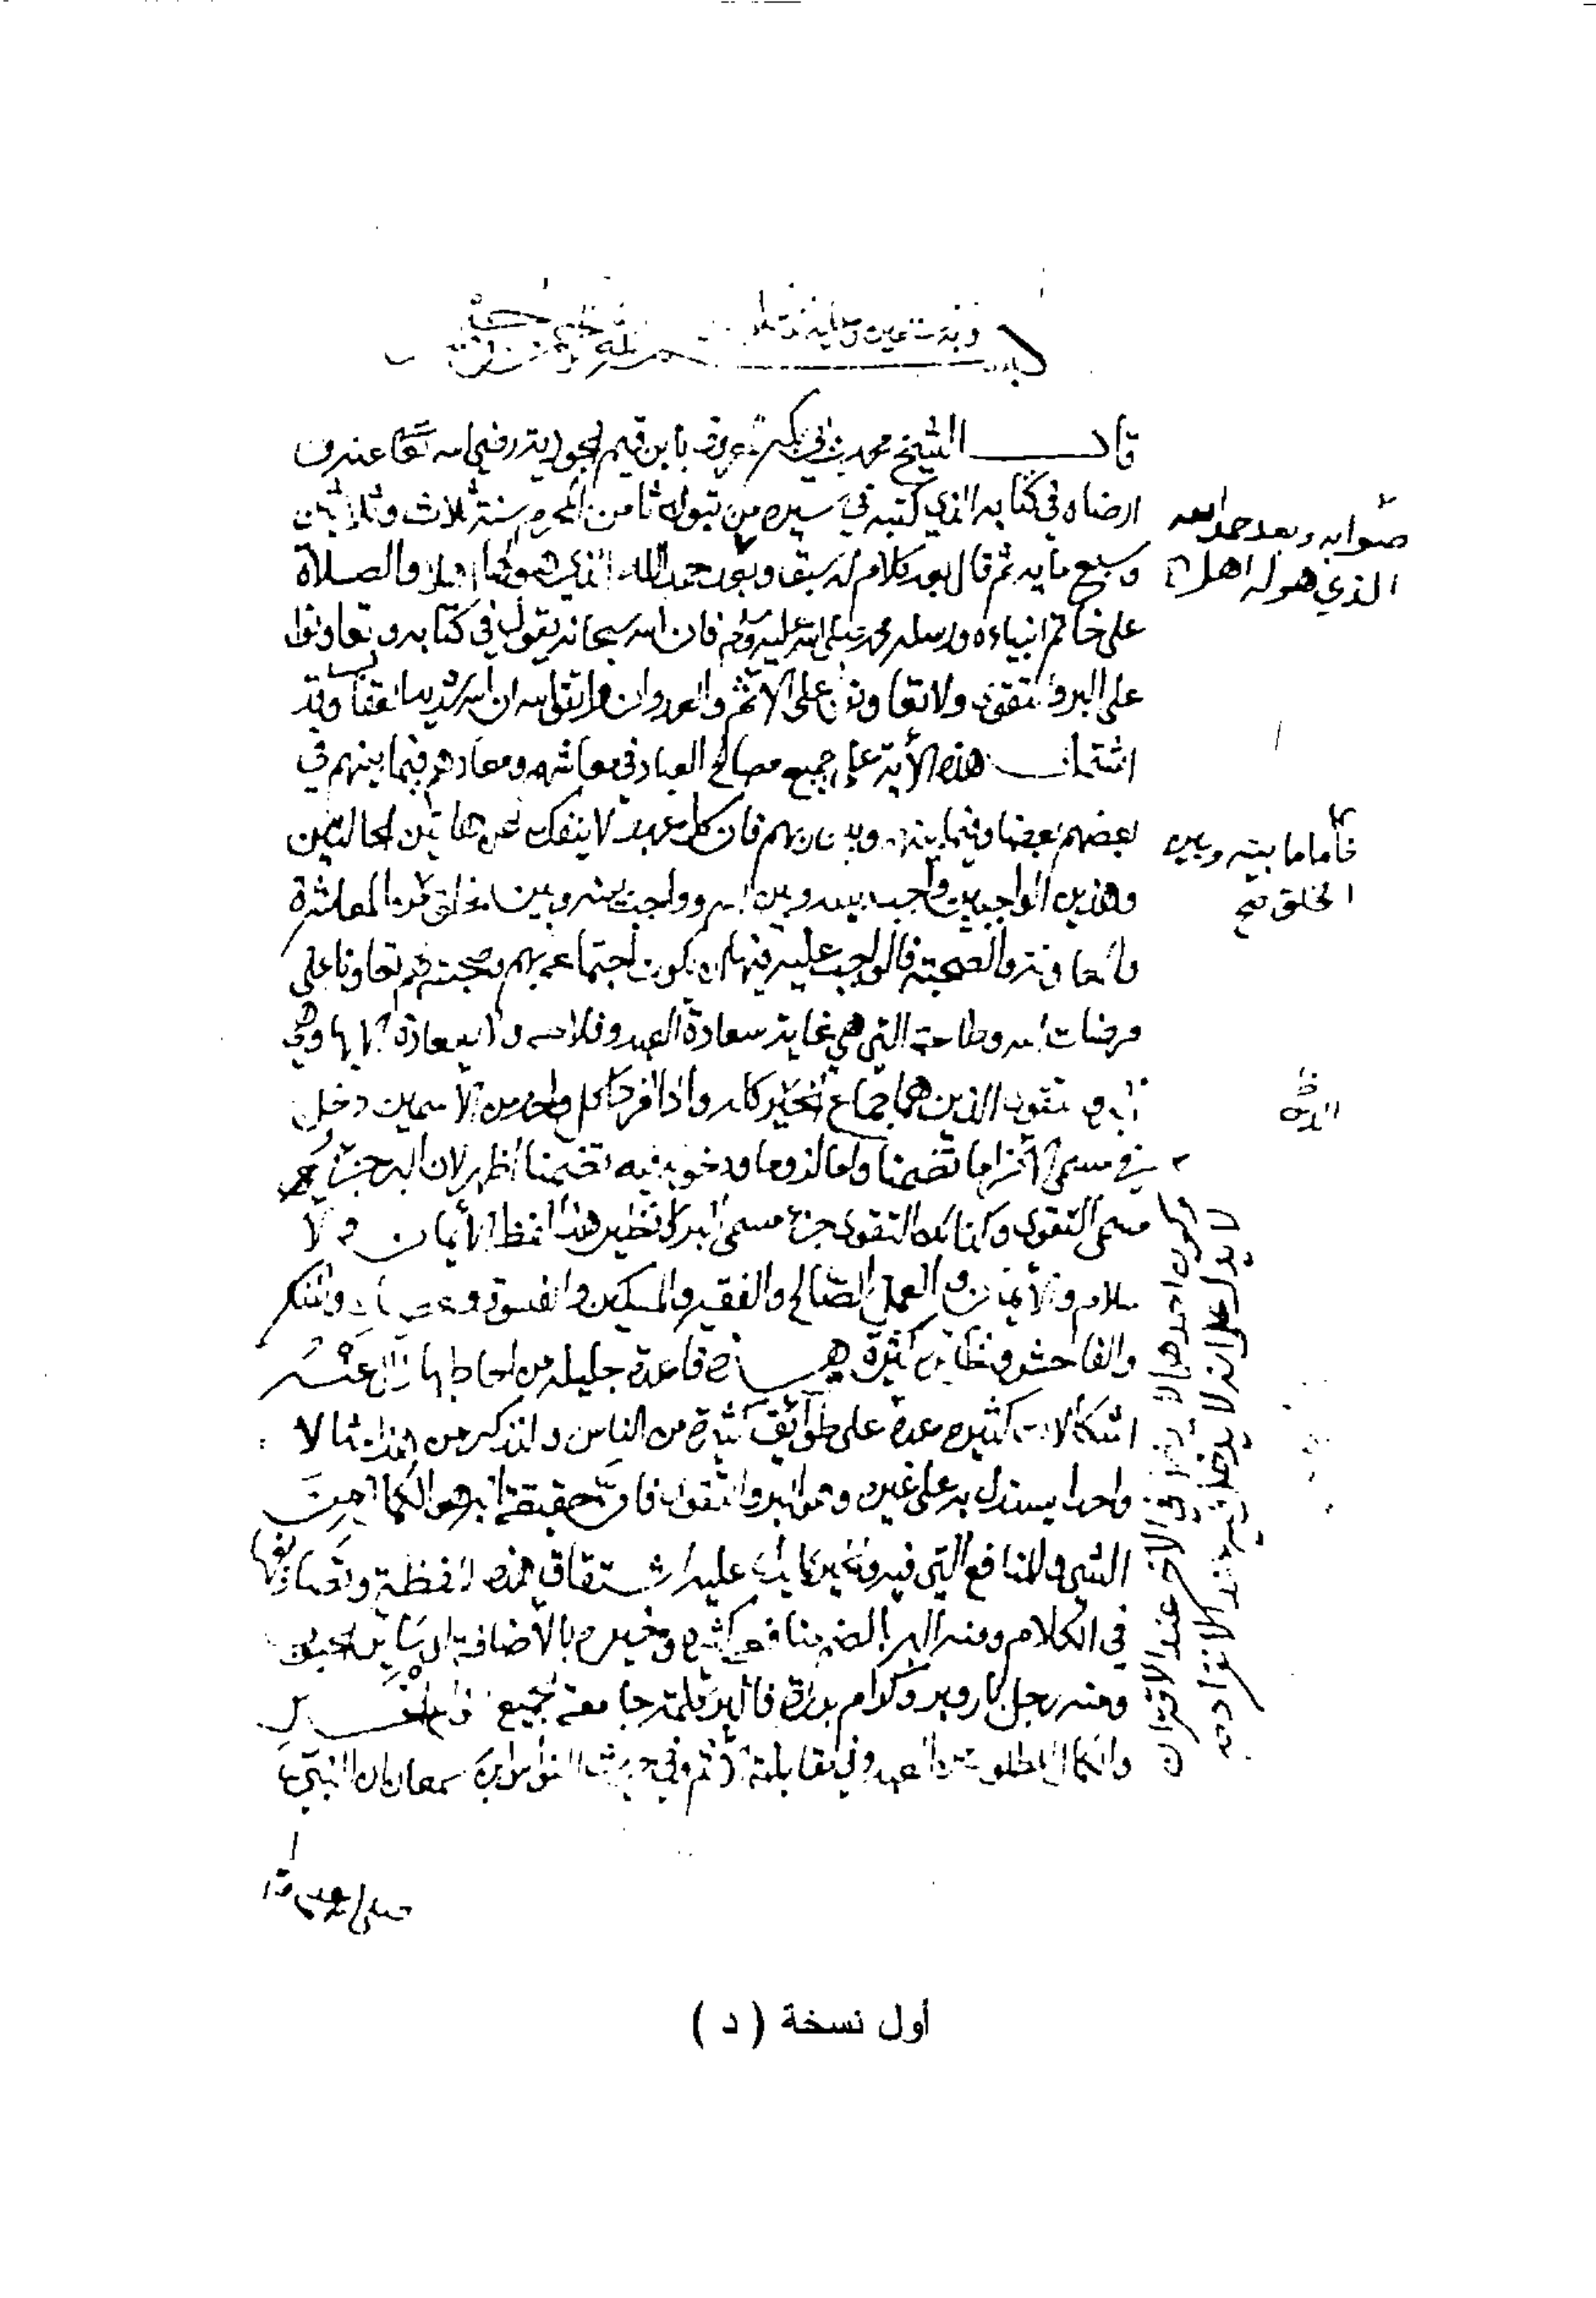 وبه نستعين وعليه
بسم الله الرحمن الرحيم
قال الشيخ محمد بن ابي بكر عرف بابن قيم الجوزية رضي الله تعا عنه و
ارضاه في كتابه الذي كتبه في سيره من تبوك ثامن المحرم سنة ثلاث وثلاثين
وسبع مايه ثم قال بعد كلام له سبق وبعد حمد الله الذي هو لها اهلا والصلاة
على خاتم انبياءه ورسله محمد صلى الله عليه وسلم فان الله سبحانه يقول في كتابه وتعاونوا
على البر والتقوى ولا تعاونوا على الاثم والعدوان واتقوا الله ان الله شديد العقاب وقد
اشتملت هذه الأية على جميع مصالح العباد في معاشهم ومعادهم فيما بينهم في
بعضهم بعضا وفيما بينهم وبين ربهم فان كل عبد لا ينفك عن هاتين الحالتين
وهذين الواجبين واجب بينه وبين الله وواجب بينه وبين الخلق من المعاشرة
والمعاونة والصحبة فالواجب عليه فيها ان يكون اجتماعه بهم وصحبته لهم تعاونا على
مرضات الله وطاعته التي هي غاية سعادة العبد وفلاحه ولا سعادة له الا بها وهي
البر والتقوى الذين هما جماع الخير كله واذا افرد كل واحد من الاسمين دخل
في مسمى الآخر اما تضمنا واما لزوما ودخوله فيه تضمنا اظهر لان البر جزء
مسمى التقوى وكذلك التقوى جزء مسمى البر ونظير هذا لفظ الأيمان والا
سلام والأيمان والعمل الصالح والفقير والمسكين والفسوق والعصيان والمنكر
والفاحشه ونظايره كثيرة وهذه قاعدة جليله من احاط بها زال عنه
اشكالات كثيره عدة على طوائف كثيرة من الناس ولنذكر من هذا مثالا
واحدا يستدل به على غيره وهو البر والتقوى فان حقيقة البر هو الكمال من
الشي والمنافع التي فيه والخير كما يدل عليه اشتقاق هذه اللفظة وتصاريفها
في الكلام ومنه البر بالضم لمنافعه كثيره وخيره بالاضافة الى سائر الحبوب
ومنه رجل بار وبر وكرام بررة فالبر كلمة جامعة لجميع الخير
والكمال المطلوب من العبد وفي مقابلته الاثم وفي حديث النواس بن سمعان ان النبي
صلى الله عليه وسلم قا
صوابه وبعد حمد الله
الذي هو له اهل
فأما ما بينه وبين
الخلق صح
وكون احدهما لا يدخل في الاخر عند الاقتران
لا يدل على انه لا يدخل فيه عند الانفراد
أول نسخة ( د )